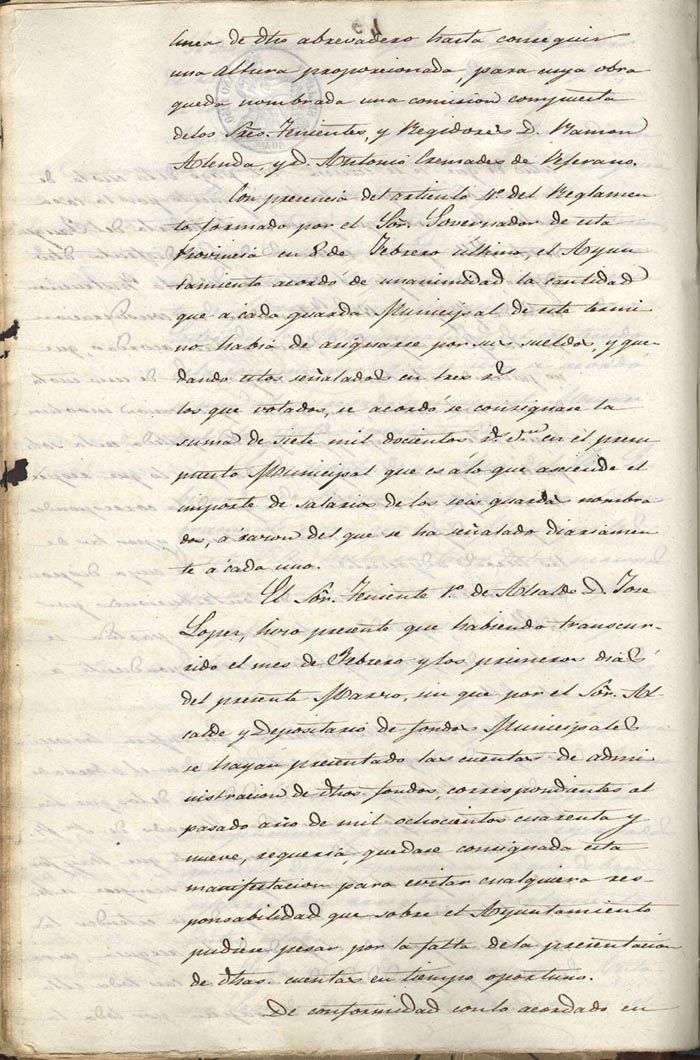 linea de dho abrevadero hasta conseguir
una altura proporcionada, para cuya obra
queda nombrada una comision compuesta
delos Sres. Tenientes, y Regidores D. Ramon
Alenda, y D. Antonio Cremades de Ceferano.
Con presencia del articulo 4º del Reglamen
to formado por el Sor. Governador de esta
Provincia en 8 de Febrero ultimo, el Ayun
tamiento acordó de unanimidad la cantidad
que a cada guarda Municipal de este termi
no habia de asignarse por sus sueldos, y que-
dando estos señalados en tres rs.
los que votados, se acordó se consignase la
suma de siete mil docientos rs. von en el presu
puesto Municipal que es a lo que asciende el
importe de salarios de los seis guardas nombra
dos, á razon del que se ha señalado diariamen
te á cada uno.
El Sor. Teniente 1º de Alcalde D. Jose
Lopez, hizo presente que habiendo transcur-
rido el mes de Febrero y los primeros dias
del presente Marzo, sin que por el Sor. Al-
calde y Depositario de fondos Municipales
se hayan presentado las cuentas de admi
nistracion de dhos. fondos, correspondientes al
pasado año de mil ochocientos cuarenta y
nueve, requeria, quedase consignada esta
manifestacion para evitar cualquiera res-
ponsabilidad que sobre el Ayuntamiento
pudiese pesar por la falta dela presentacion
de dhas. cuentas en tiempo oportuno.
De conformidad conlo acordado en